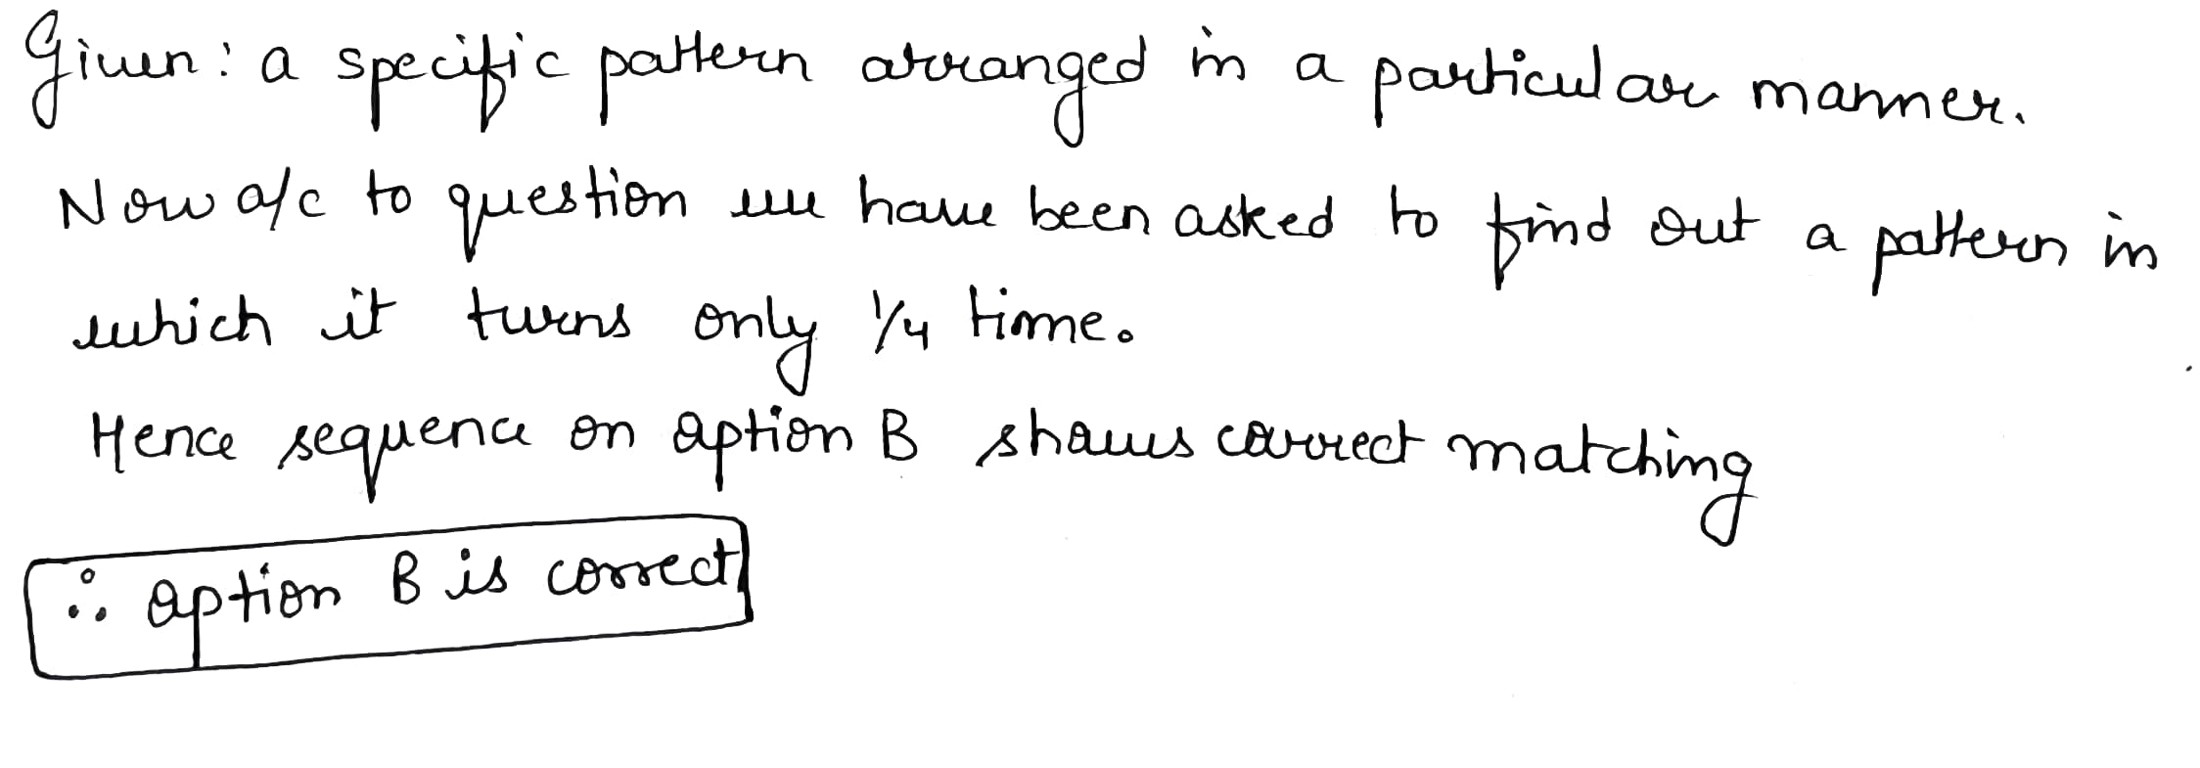 Given: a specific pattern arranged in a particular manner.
Now a/c to question we have been asked to find out a pattern in
which it turns only 1/4 time.
Hence sequence on option B shows correct matching
∴ option B is correct